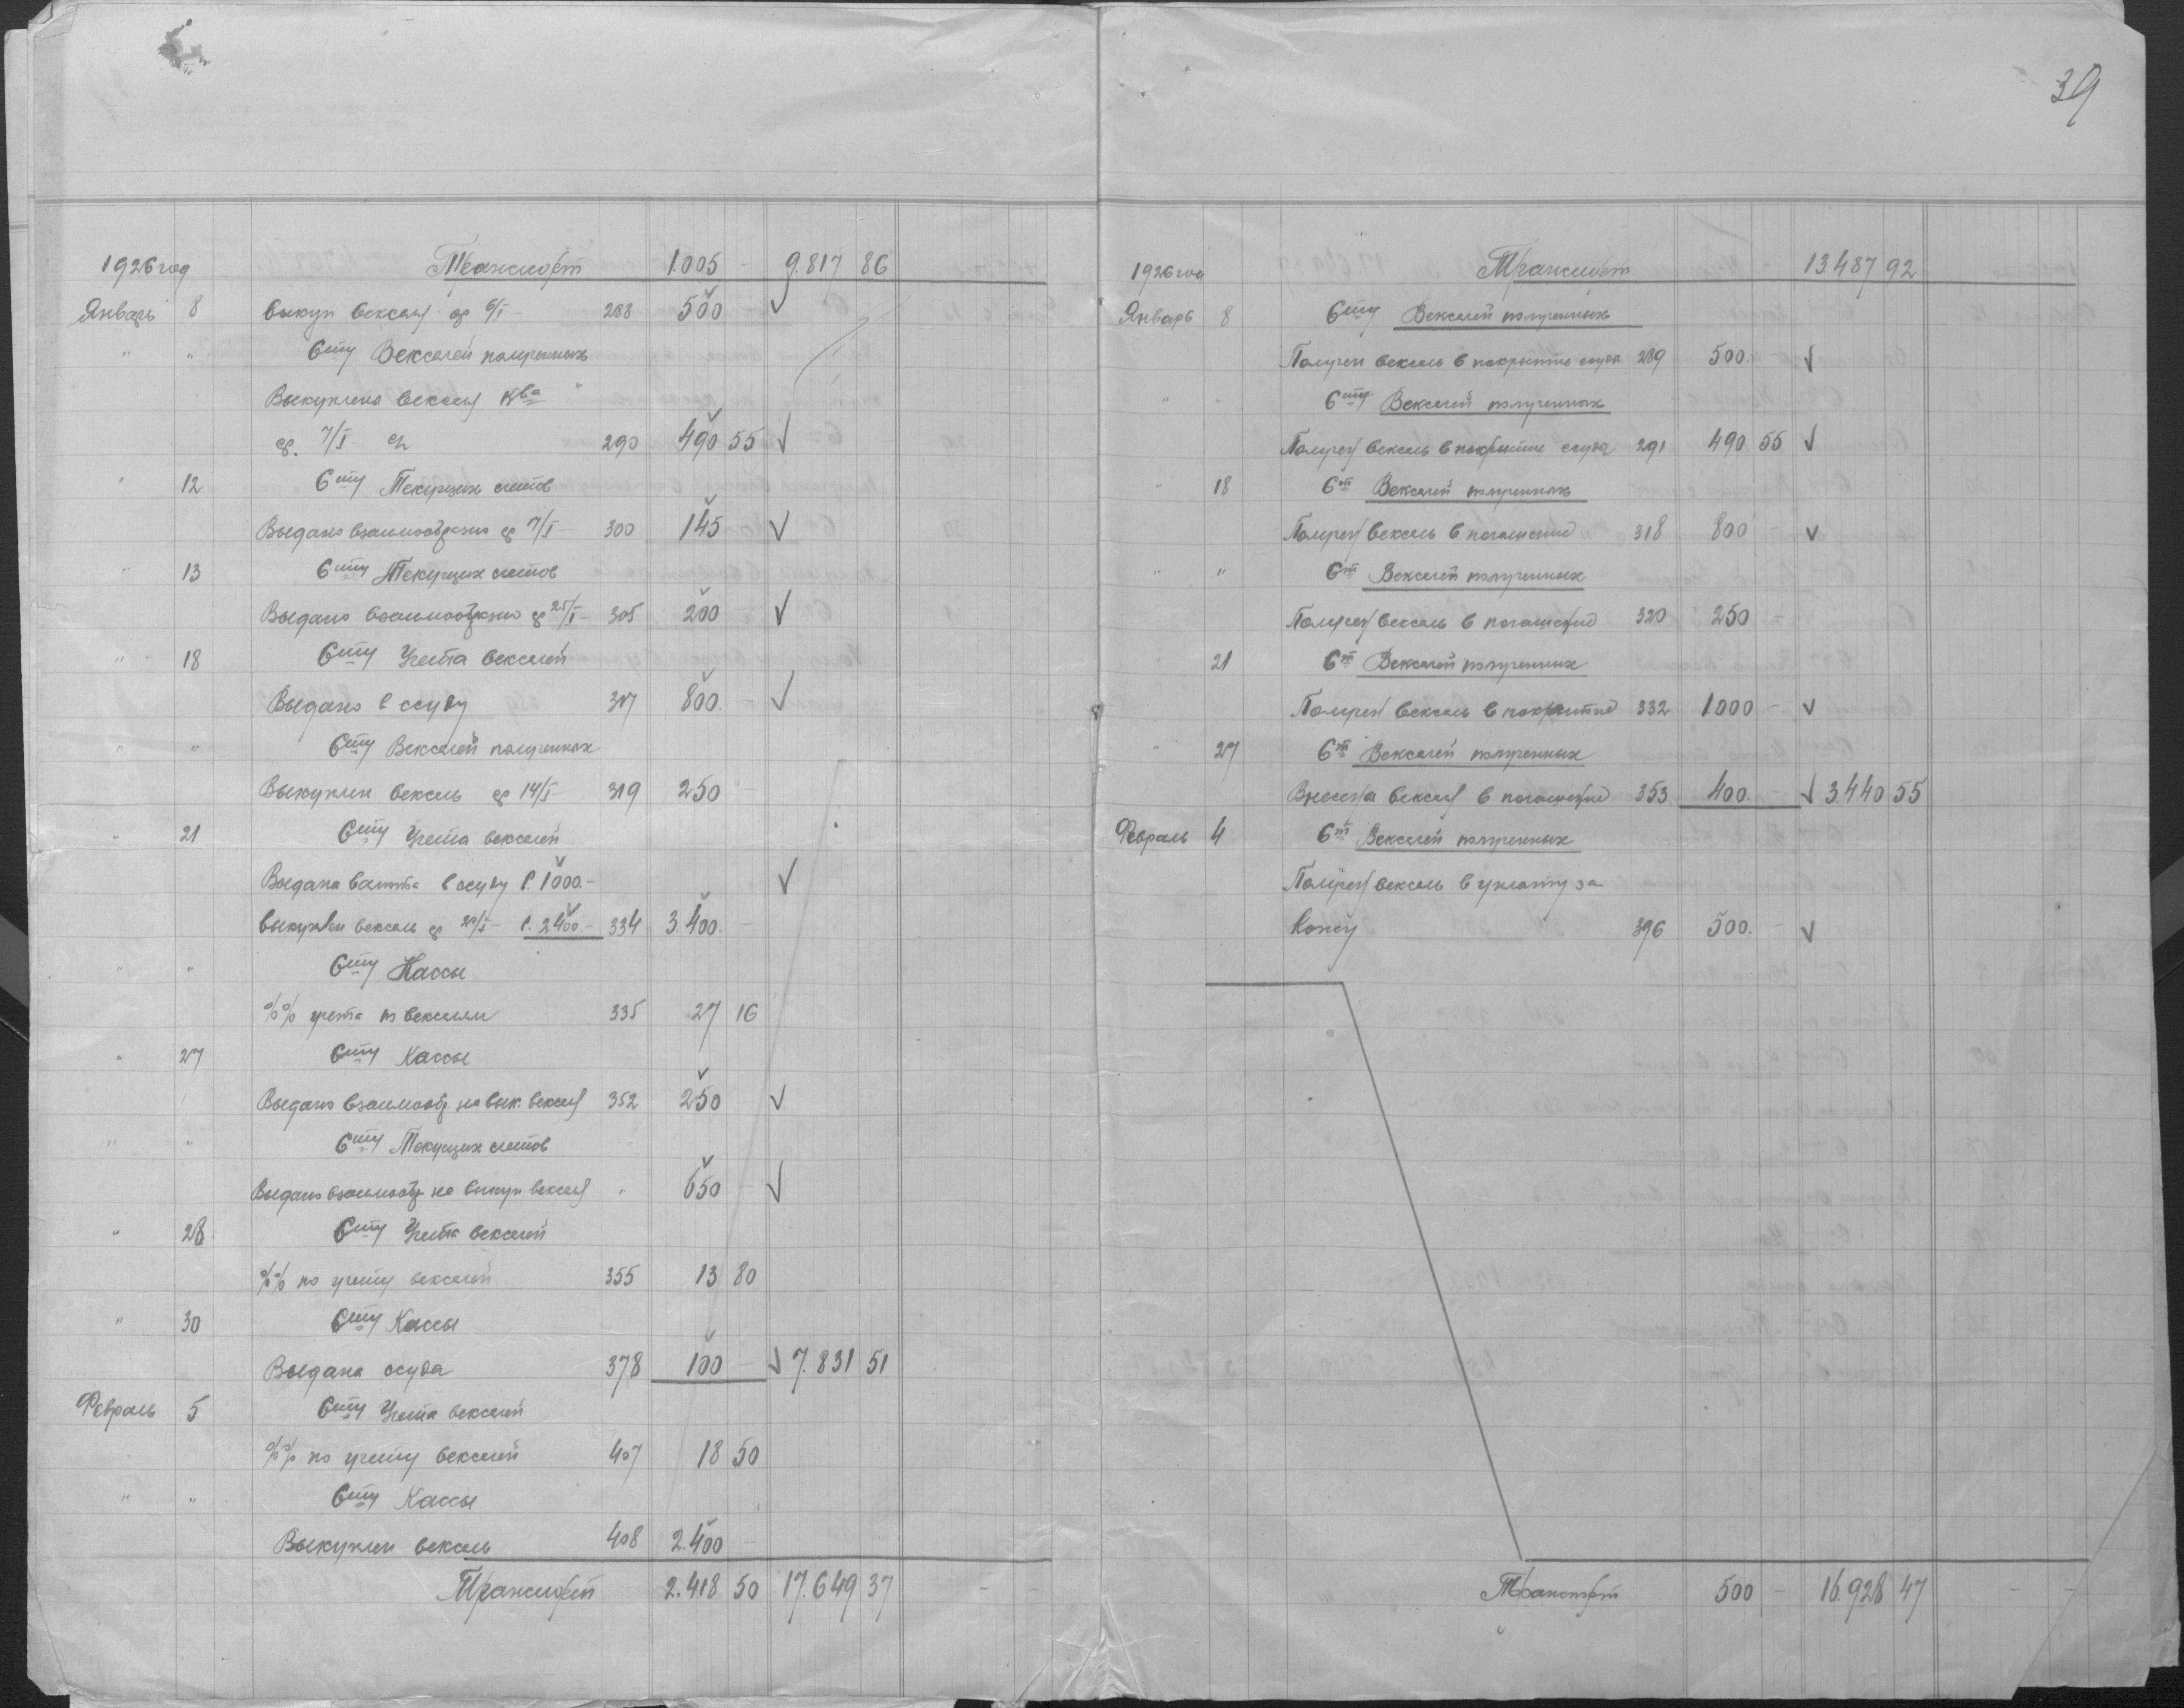 39
1926 год Транспорт 1.005 - 9.817 86
Январь 8 выкуп векселя ср 6/I - 288 500 - ✓
" " Сту Векселей полученных
Выкуплена векселя
ср. 7/I 290 490 55 ✓
" 12 Сту Текущих счетов
Выдано взаимообразно ср 7/I - 300 145 - ✓
" 13 Сту Текущих счетов
Выдано взаимообразно ср 25/I - 305 200 - ✓
" 18 Сту Учета векселей
Выдано в ссуду 317 800. - ✓
" " Сту Векселей полученных
Выкуплен вексель ср 14/I - 319 250 -
" 21 Сту Учета векселей
Выдана в ссуду Р. 1000.- ✓
выкуплен вексель ср 20/I - Р. 2400.- 334 3.400. -
" " Сту Кассы
%% учета по векселям 335 27 16
" 27 Сту Кассы
Выдано взаимообр. на вык. векселя 352 250 - ✓
" " Сту Текущих счетов
Выдано взаимообр на выкуп векселя " 650 - ✓
" 28 Сту Учета векселей
%% по учету векселей 355 13 80
" 30 Сту Кассы
Выдана ссуда 378 100 - ✓ 7.831 51
Февраль 5 Сту Учета векселей
%% по учету векселей 407 18 50
" " Сту Кассы
Выкуплен вексель 408 2.400 -
Транспорт 2.418 50 17.649 37 - -
1926 год Транспорт 13.487 92
Январь 8 Сту Векселей полученных
Получен вексель в покрытие ссуды 289 500. - ✓
" " Сту Векселей полученных
Получен вексель в покрытие ссуды 291 490 55 ✓
" 18 Ст Векселей полученных
Получен вексель в погашение 318 800 - ✓
" " Ст Векселей полученных
Получен вексель в погашение 320 250 -
" 21 Ст Векселей полученных
Получен вексель в покрытие 332 1000 - ✓
" 27 Ст Векселей полученных
Внесена векселя в погашение 353 400. - ✓ 3.440 55
Февраль 4 Ст Векселей полученных
Получен вексель в уплату за
кожу 396 500. - ✓
Транспорт 500 - 16.928 47 - -